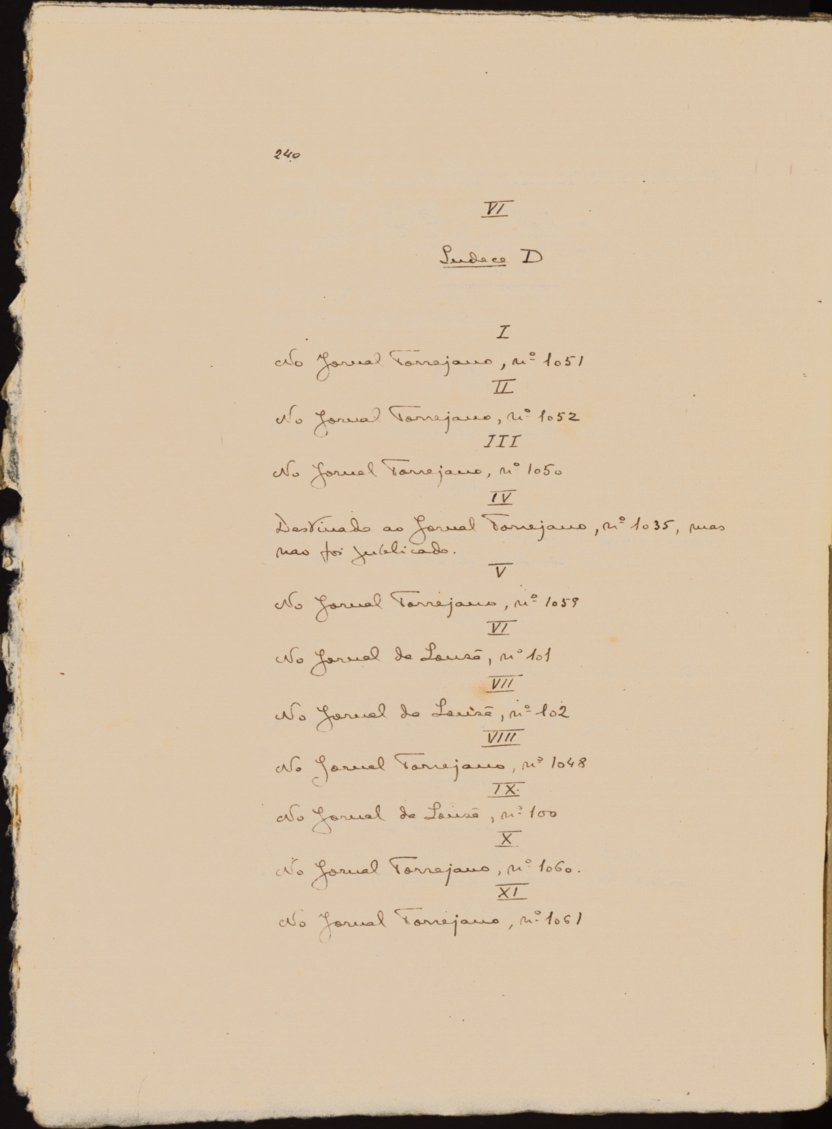 240
VI
Indece D
I
No Jornal Torrejano, nº 1051
II
No Jornal Torrejano, nº 1052
III
No Jornal Torrejano, nº 1050
IV
Destinado ao Jornal Torrejano, nº 1035, mas
nao foi publicado.
V
No Jornal Torrejano, nº 1059
VI
No Jornal da Louzã, nº 101
VII
No Jornal da Louzã, nº 102
VIII
No Jornal Torrejano, nº 1048
IX
No Jornal da Louzã, nº 100
X
No Jornal Torrejano, nº 1060.
XI
No Jornal Torrejano, nº 1061